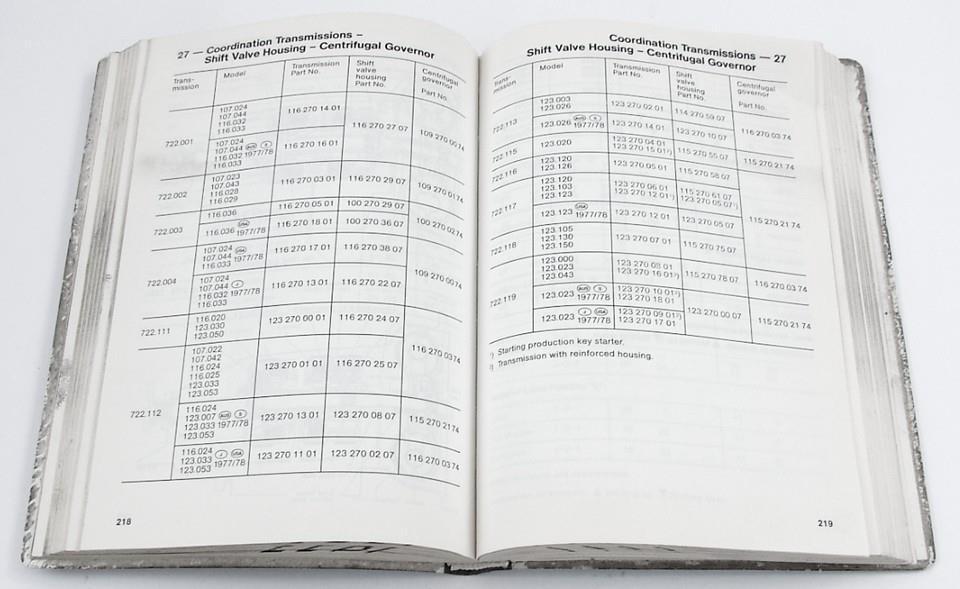 27 — Coordination Transmissions –
Shift Valve Housing – Centrifugal Governor
Trans- Model Transmission Shift Centrifugal
mission Part No. valve governor
housing
Part No. Part No.
107.024 116 270 14 01
107.044
116.032
116.033
116 270 27 07 109 270 00 74
722.001 107.024
107.044 AUS S 116 270 16 01
116.032 1977/78
116.033
722.002 107.023 116 270 03 01 116 270 29 07 109 270 01 74
107.043
116.028
116.029
722.003 116.036 116 270 05 01 100 270 29 07 100 270 02 74
116.036 USA 1977/78 116 270 18 01 100 270 36 07
722.004 107.024 USA 116 270 17 01 116 270 38 07 109 270 00 74
107.044 1977/78
116.033
107.024
107.044 J 116 270 13 01 116 270 22 07
116.032 1977/78
116.033
722.111 116.020 123 270 00 01 116 270 24 07 116 270 03 74
123.030
123.050
722.112 107.022
107.042
116.024 123 270 01 01 116 270 25 07
116.025
123.033
123.053
116.024
123.007 AUS S 123 270 13 01 123 270 08 07 115 270 21 74
123.033 1977/78
123.053
116.024 J USA 123 270 11 01 123 270 02 07 116 270 03 74
123.033 1977/78
123.053
218
Coordination Transmissions — 27
Shift Valve Housing – Centrifugal Governor
Trans- Model Transmission Shift Centrifugal
mission Part No. valve governor
housing
Part No. Part No.
722.113 123.003 123 270 02 01 114 270 59 07 116 270 03 74
123.026
123.026 AUS S 1977/78 123 270 14 01 123 270 10 07
722.115 123.020 123 270 04 01 115 270 55 07 115 270 21 74
123 270 15 01²)
722.116 123.120 123 270 05 01 115 270 58 07
123.126
722.117 123.120 123 270 06 01 115 270 61 07 115 270 21 74
123.103 123 270 12 01¹) 123 270 05 07¹)
123.123
123.123 USA 1977/78 123 270 12 01 123 270 05 07
722.118 123.105 123 270 07 01 115 270 75 07
123.130
123.150
722.119 123.000 123 270 08 01 115 270 78 07 116 270 03 74
123.023 123 270 16 01²)
123.043
123.023 AUS S 1977/78 123 270 10 01²) 123 270 00 07 115 270 21 74
123 270 18 01
123.023 J USA 1977/78 123 270 09 01²)
123 270 17 01
¹) Starting production key starter.
²) Transmission with reinforced housing.
219